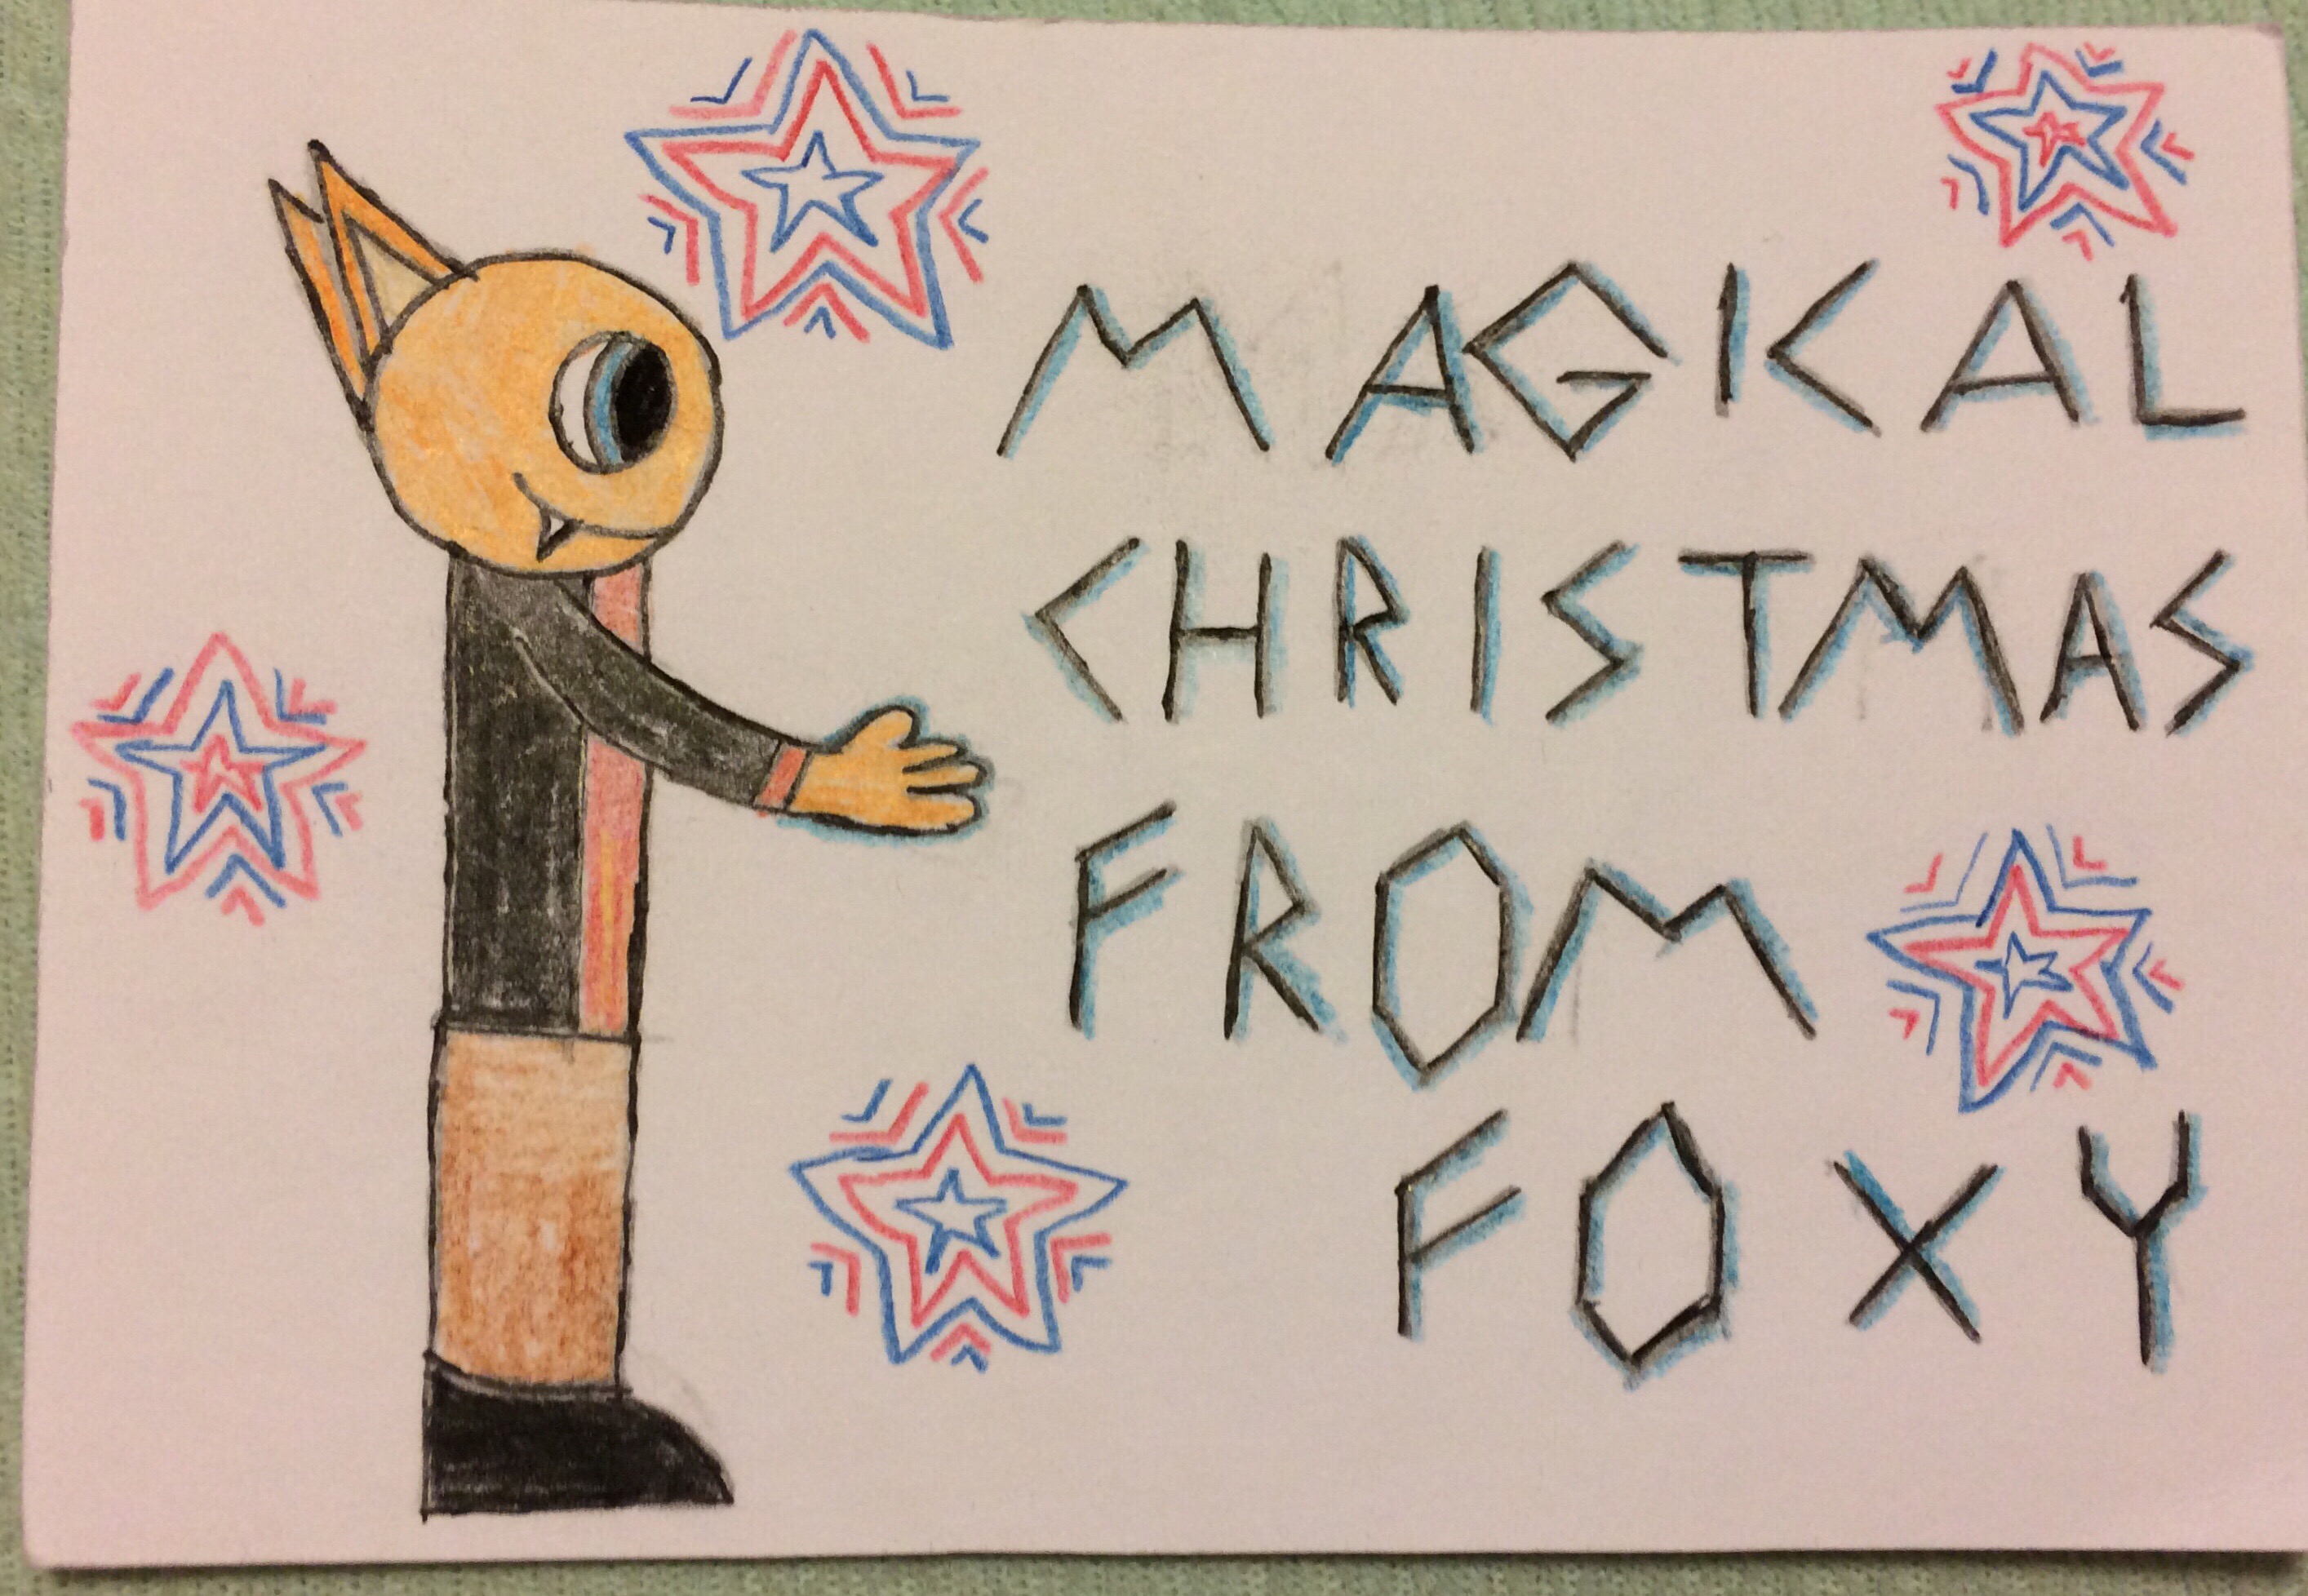 MAGICAL
CHRISTMAS
FROM
FOXY